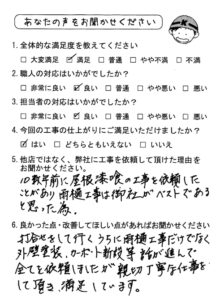 あなたの声をお聞かせください
1. 全体的な満足度を教えてください
□ 大変満足 ☑ 満足 □ 普通 □ やや不満 □ 不満
2. 職人の対応はいかがでしたか?
□ 非常に良い ☑ 良い □ 普通 □ やや悪い □ 悪い
3. 担当者の対応はいかがでしたか?
□ 非常に良い ☑ 良い □ 普通 □ やや悪い □ 悪い
4. 今回の工事の仕上がりにご満足いただけましたか?
☑ はい □ どちらともいえない □ いいえ
5. 他店ではなく、弊社に工事を依頼して頂けた理由を
お聞かせください。
10数年前に屋根漆喰の工事を依頼した
ことがあり雨樋工事は御社がベストである
と思った為。
6. 良かった点・改善してほしい点があればお聞かせください
打合せをして行くうちに雨樋工事だけでなく
外壁塗装、カーポート新設等話が進んで
全てを依頼しましたが親切丁寧な仕事を
して頂き、満足しています。